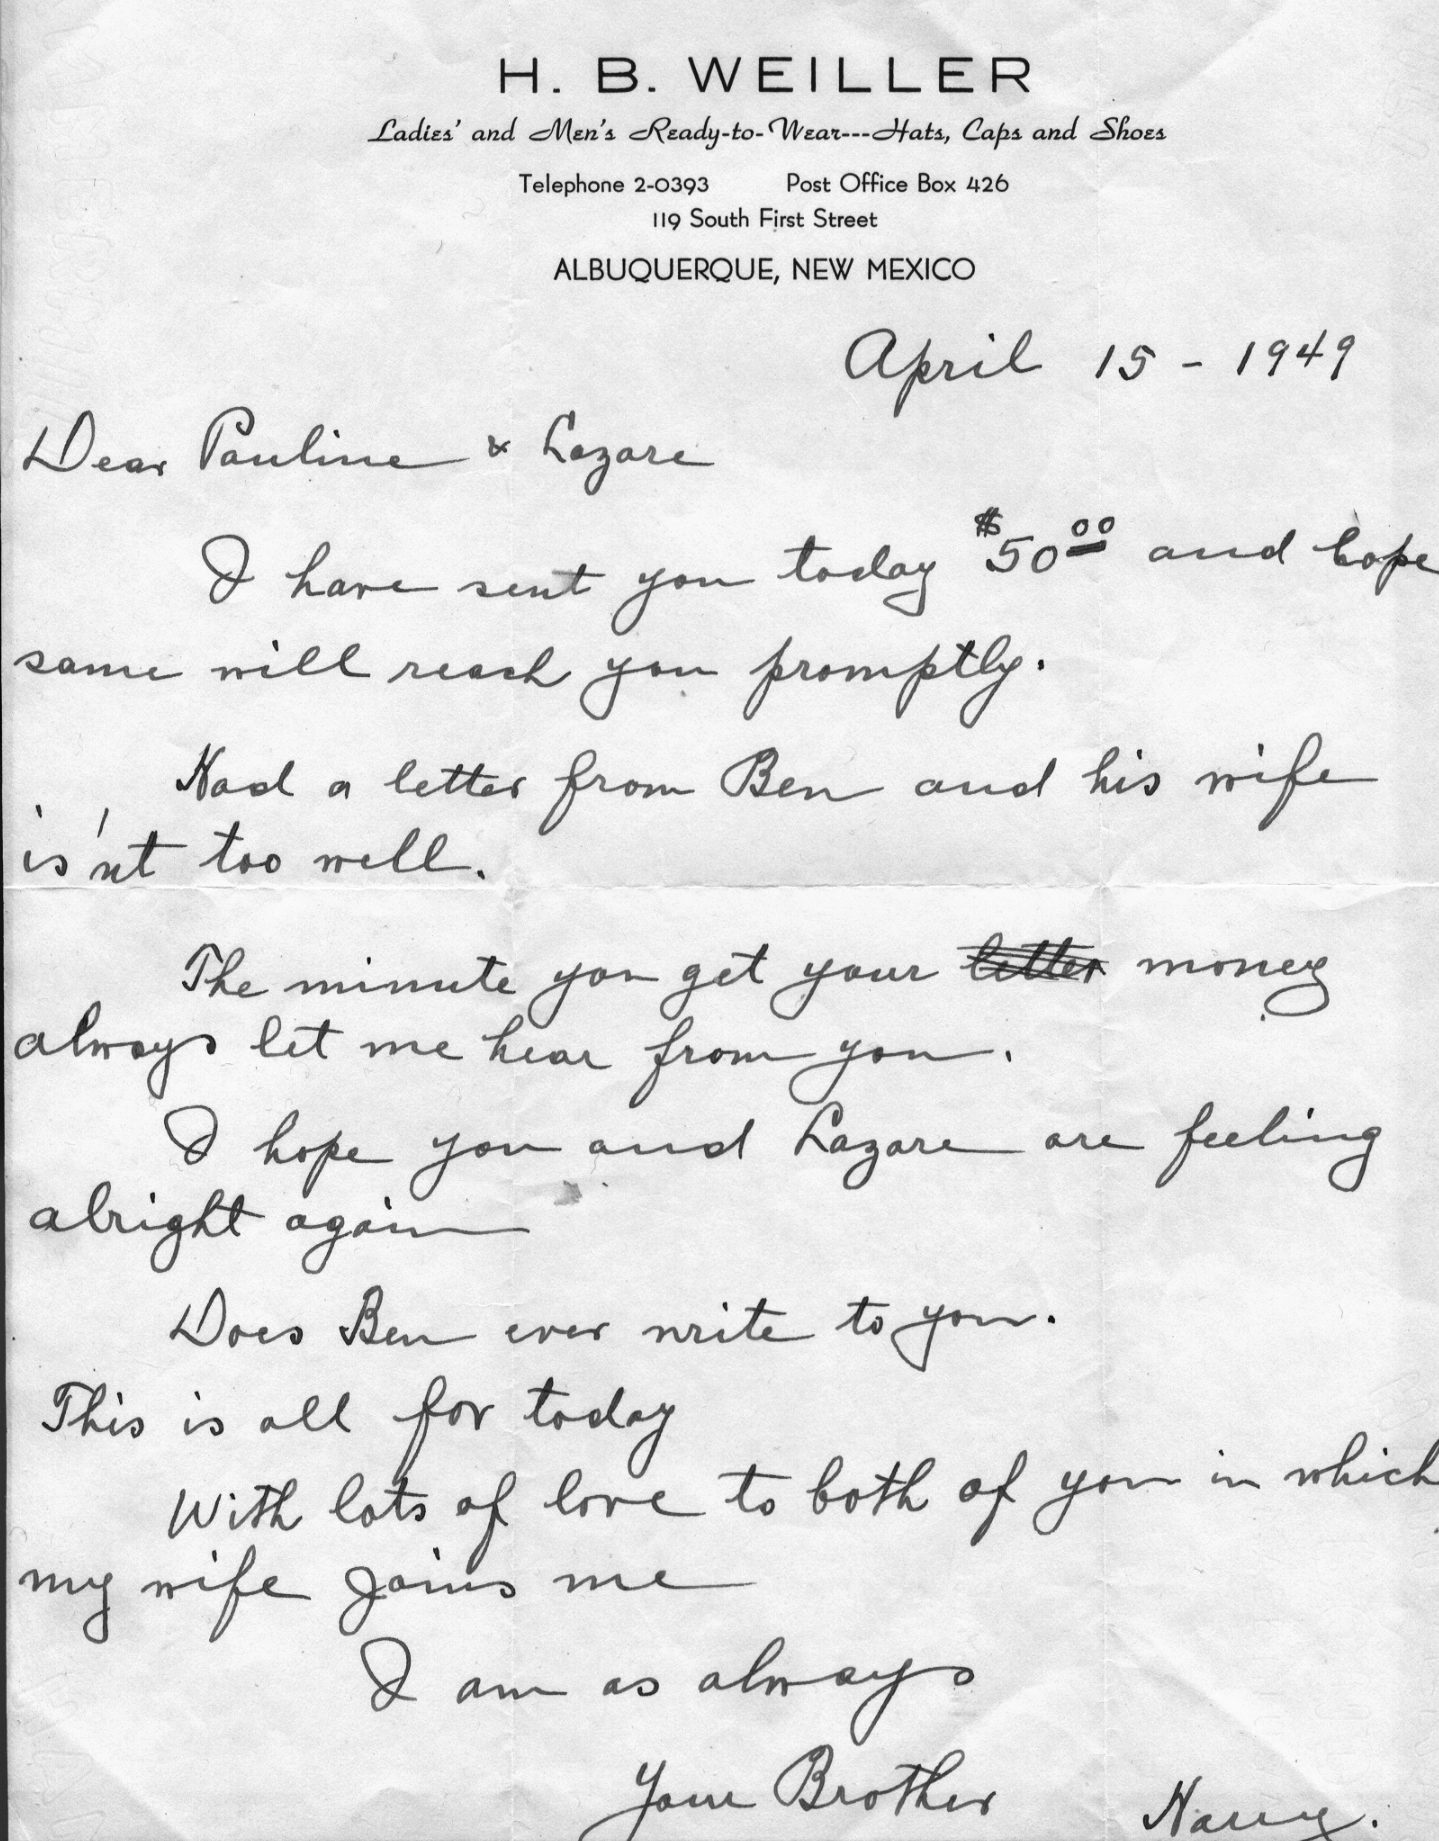 H. B. WEILLER
Ladies' and Men's Ready-to-Wear---Hats, Caps and Shoes
Telephone 2-0393 Post Office Box 426
119 South First Street
ALBUQUERQUE, NEW MEXICO
April 15 - 1949
Dear Pauline & Lazare
I have sent you today $50.00 and hope
same will reach you promptly.
Had a letter from Ben and his wife
is'nt too well.
The minute you get your letter money
always let me hear from you.
I hope you and Lazare are feeling
alright again
Does Ben ever write to you.
This is all for today
With lots of love to both of you in which
my wife joins me
I am as always
Your Brother Harry.